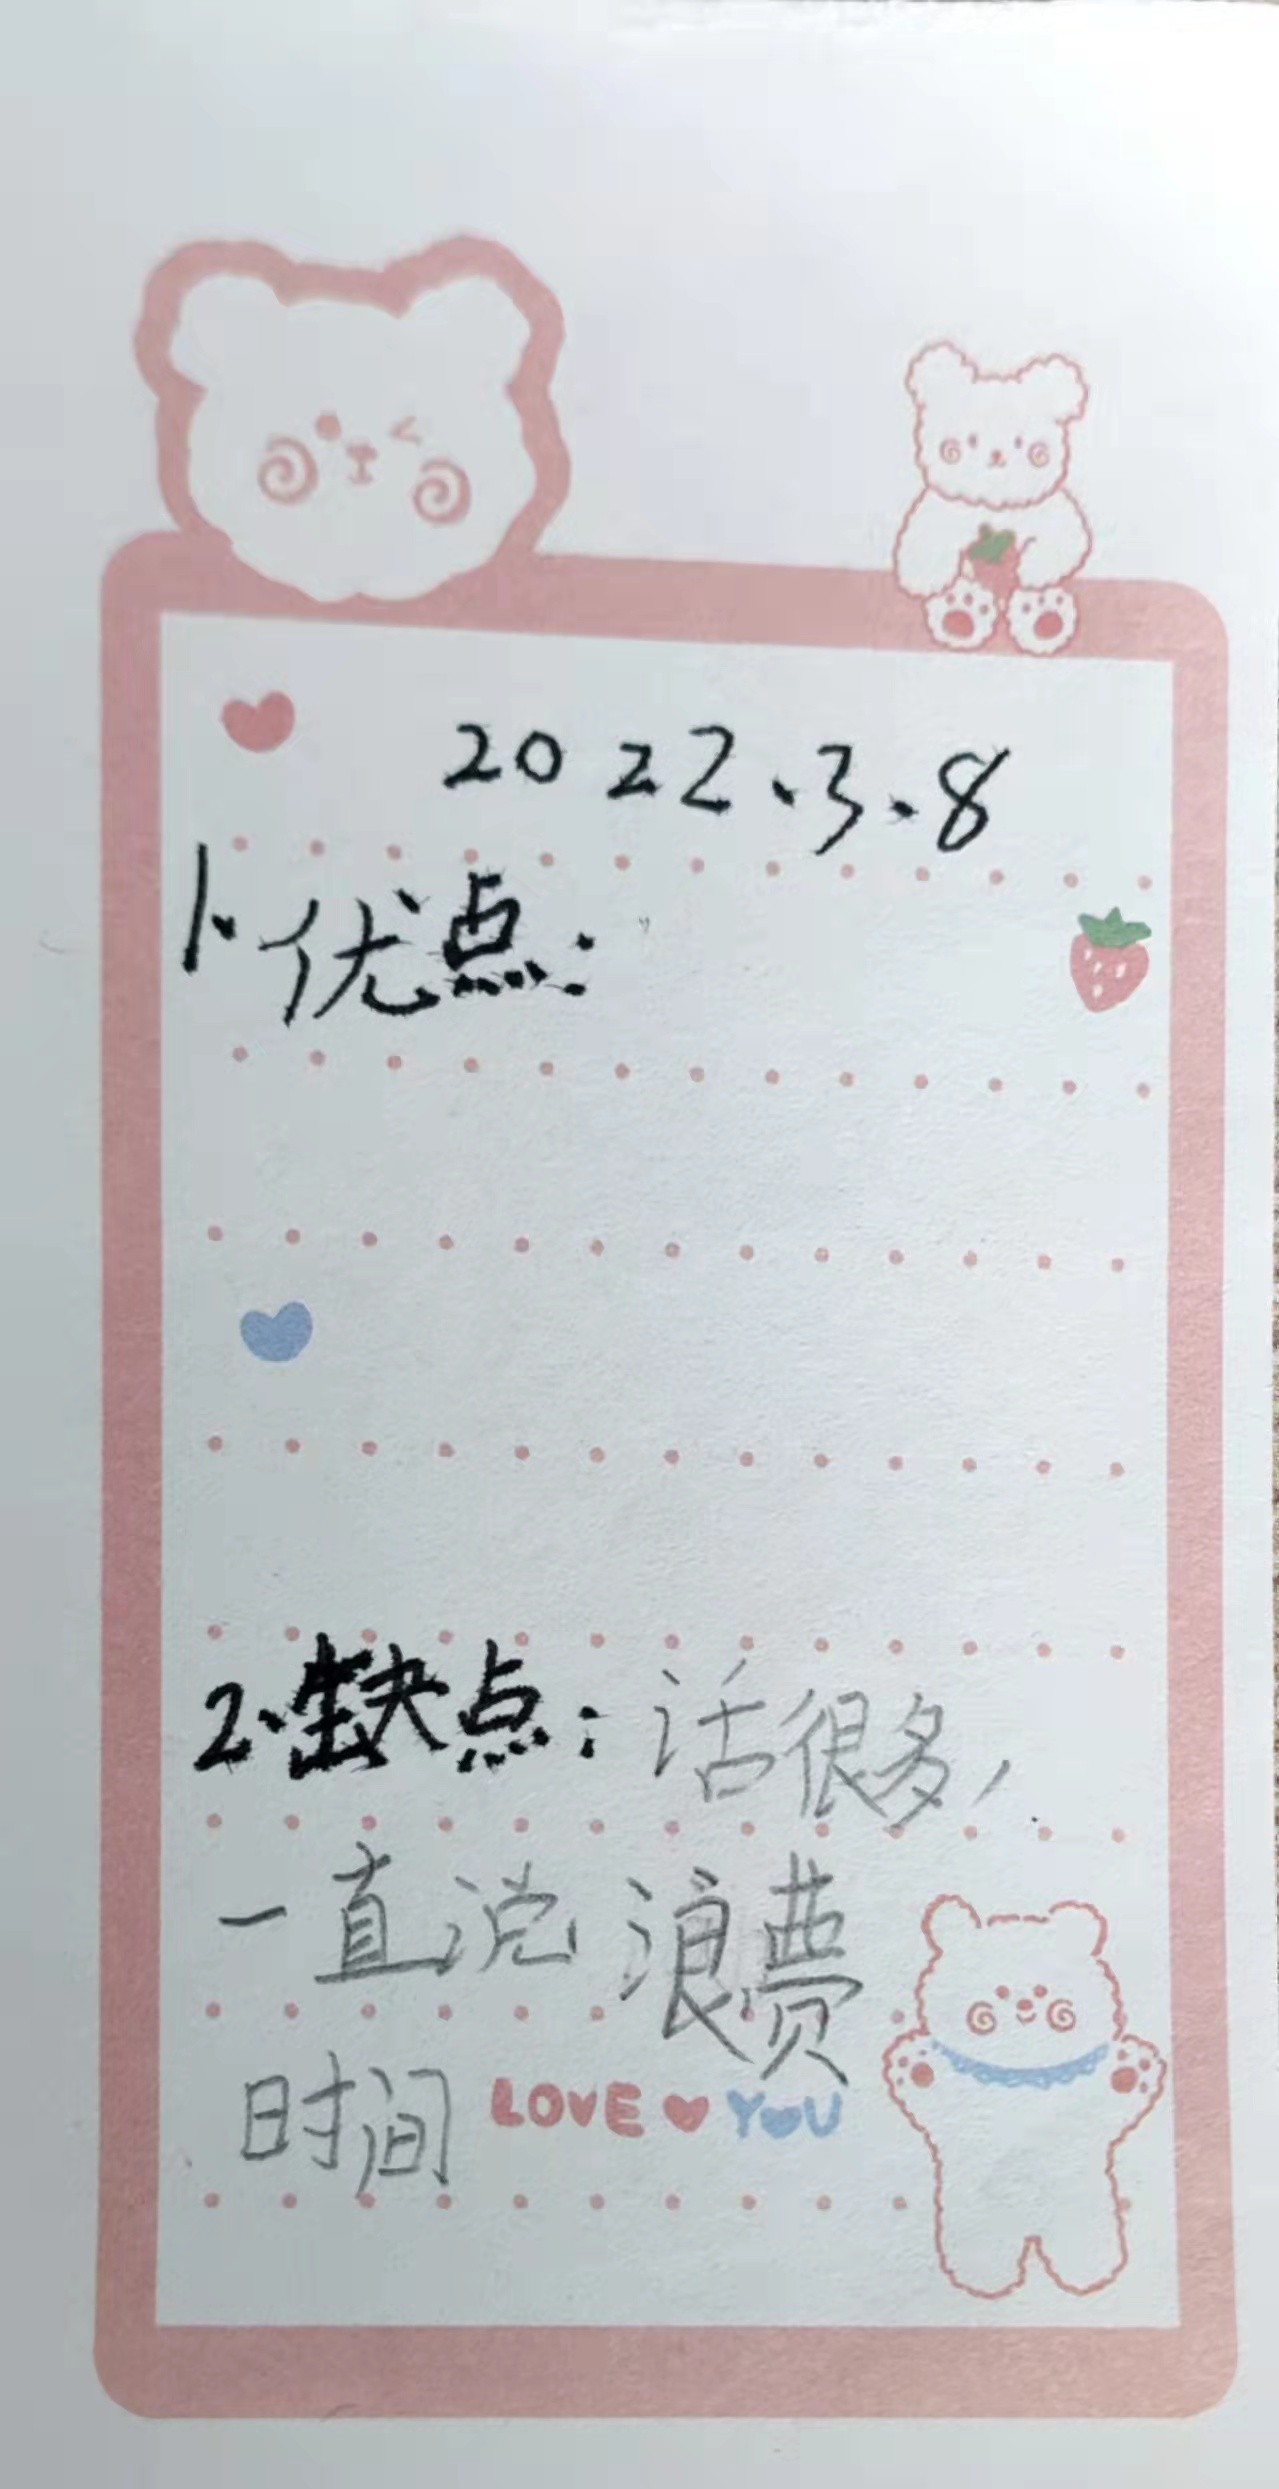 2022.3.8
1.优点:
2.缺点:话很多,
一直说浪费
时间 LOVE YOU